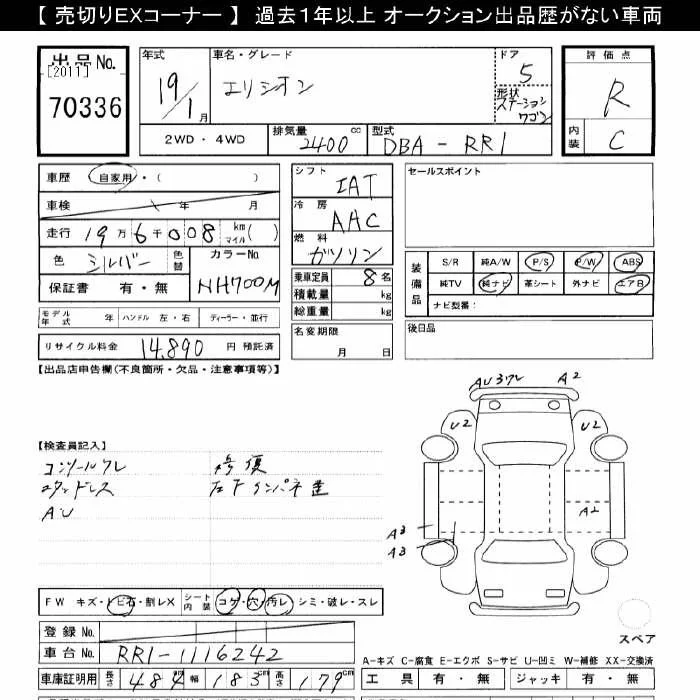 【 売切りEXコーナー 】 過去１年以上 オークション出品歴がない車両
出品No. [2011] 70336
年式 19/1月
車名・グレード エリシオン
ドア 5
形状 ステーションワゴン
評価点 R
内装 C
2WD・4WD
排気量 2400 cc
型式 DBA-RR1
車歴 自家用・( )
車検 年 月
走行 19万6千008 km マイル( )
色 シルバー 色替
カラーNo. NH700M
保証書 有・無
モデル年式 年 ハンドル 左・右 ディーラー・並行
リサイクル料金 14,890 円 預託済
シフト IAT
冷房 AAC
燃料 ガソリン
乗車定員 8名
積載量 kg
総重量 kg
名変期限 月 日
セールスポイント
装備品 S/R 純A/W P/S P/W ABS
純TV 純ナビ 革シート 外ナビ エアB
ナビ型番：
後日品
【出品店申告欄(不良箇所・欠品・注意事項等)】
【検査員記入】
コンソールワレ
スタッドレス
AU
修復
左下インパネ
AU3ワレ A2
U2 U2
A2
A3
A3
スペア
FW キズ・トビ石・割レX シート内装 コゲ・穴・汚レ・シミ・破レ・スレ
登録No.
車台No. RR1-1116242
A-キズ C-腐食 E-エクボ S-サビ U-凹ミ W-補修 XX-交換済
車庫証明用 長さ 482 cm 幅 183 cm 高さ 179 cm
工具 有・無 ジャッキ 有・無